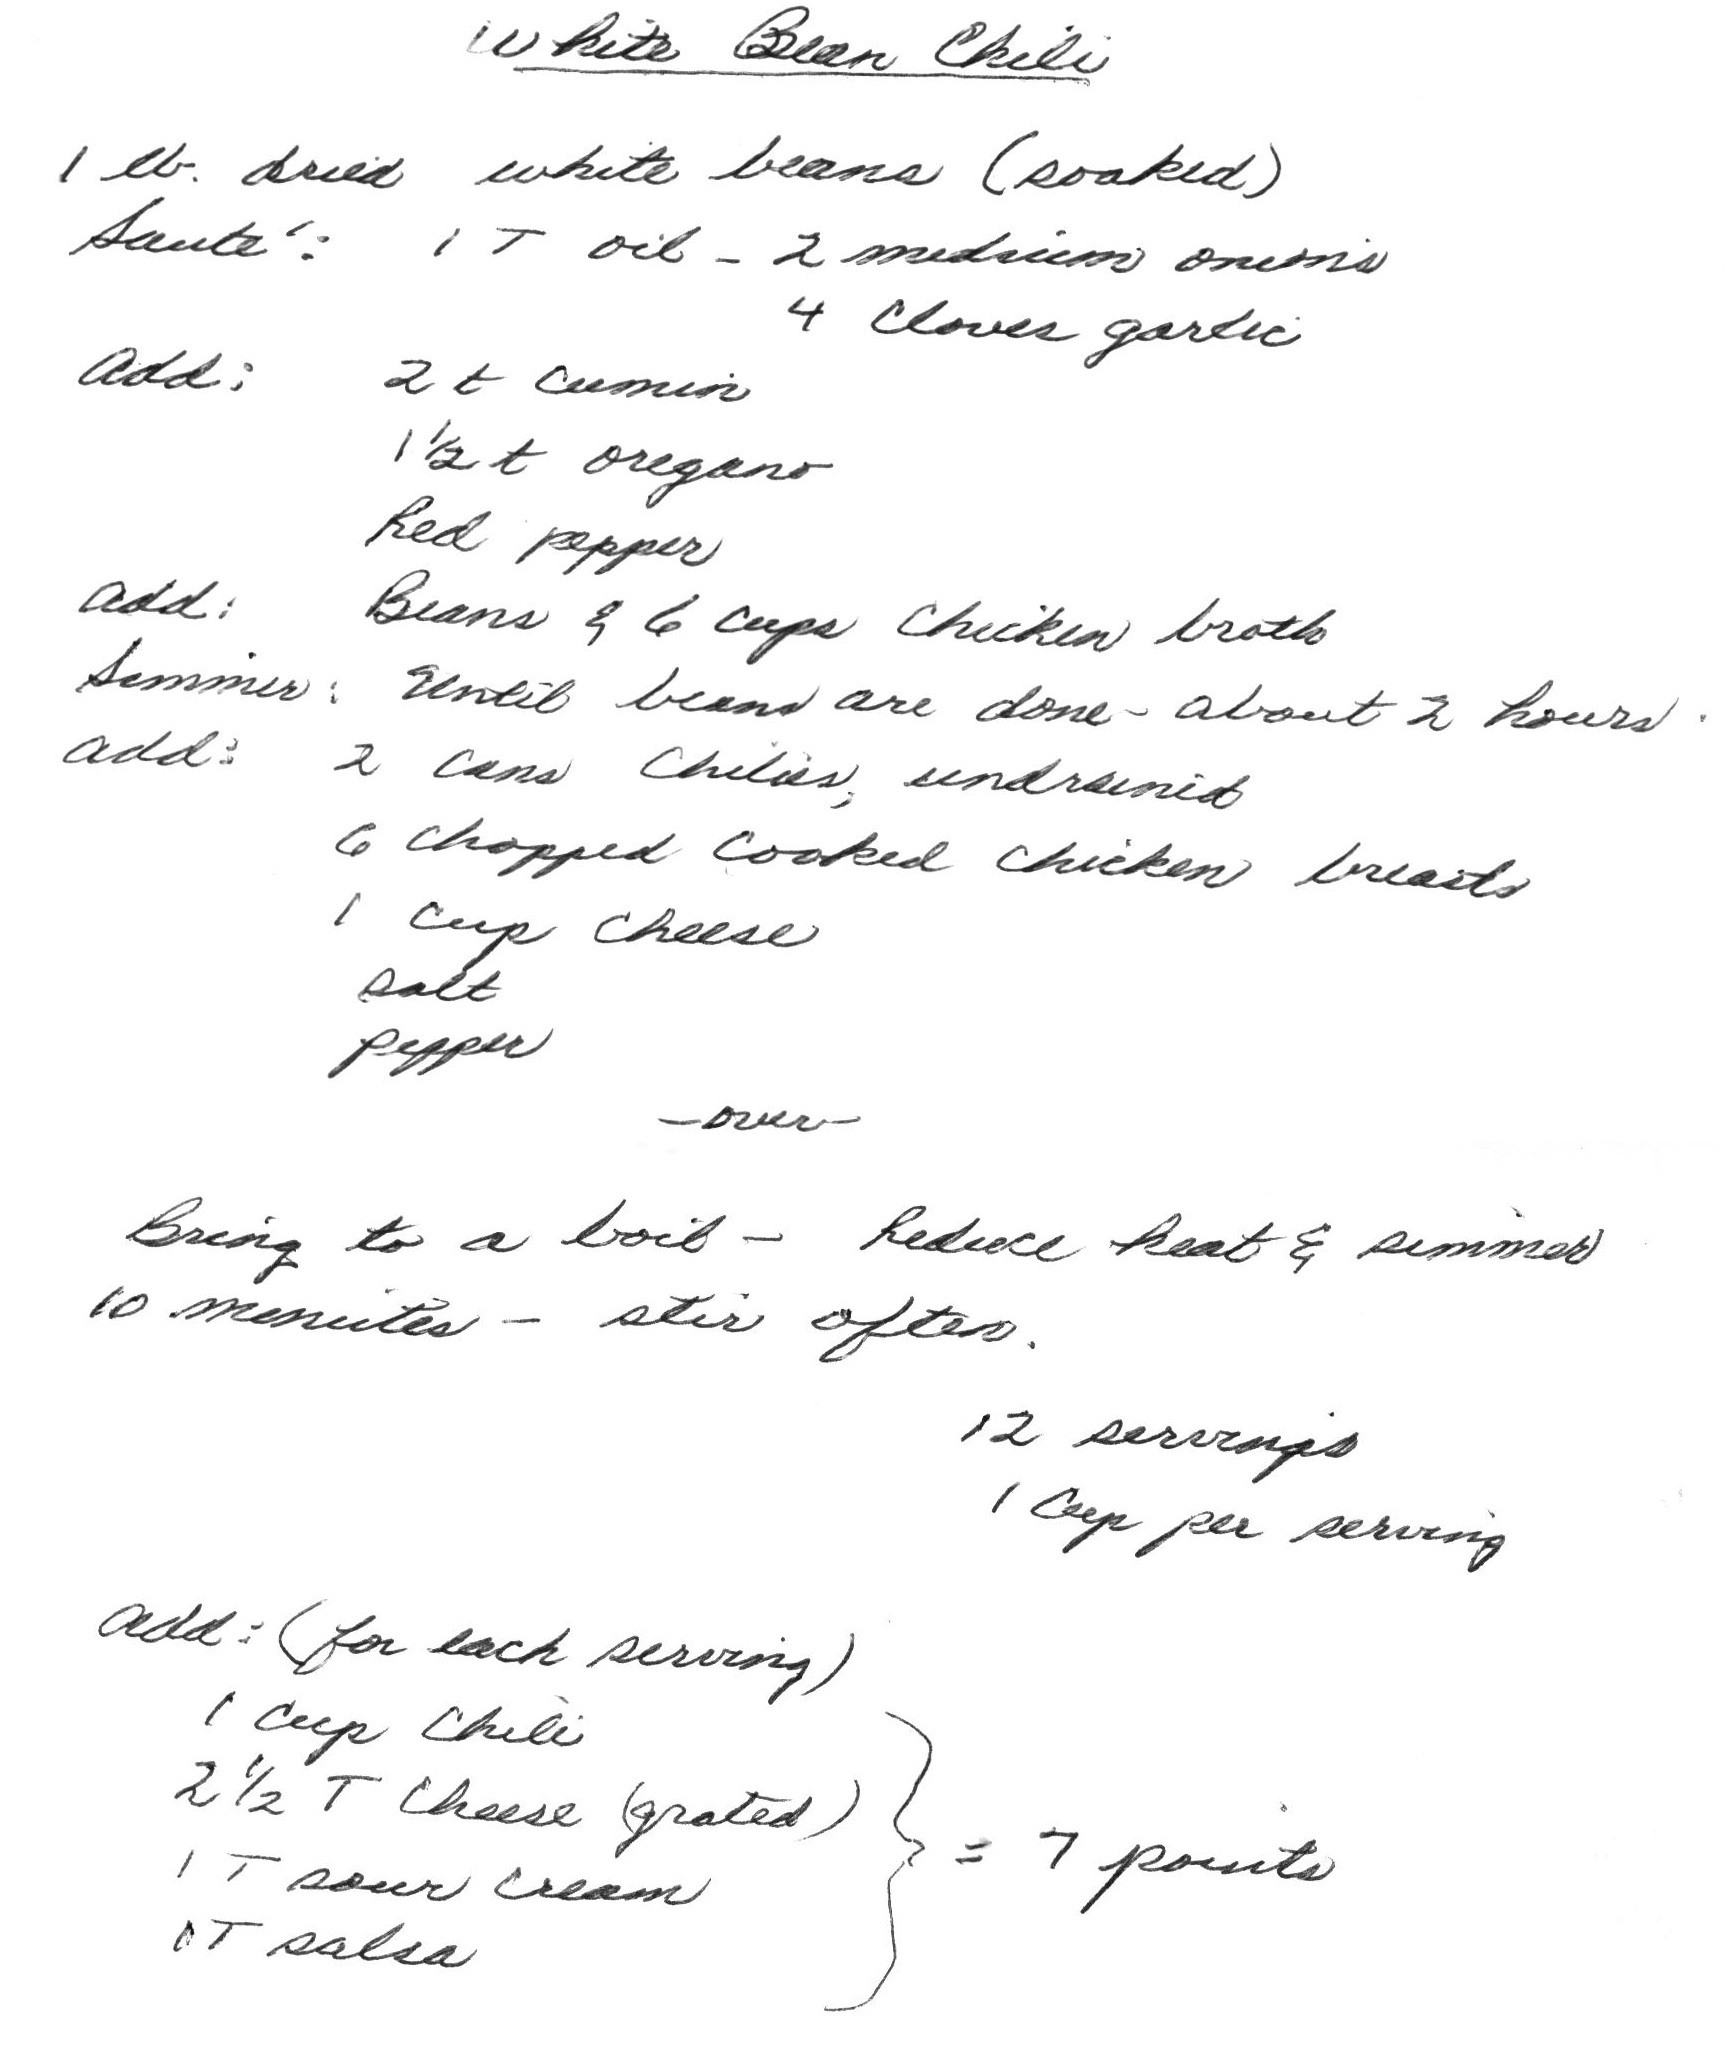 White Bean Chili
1 lb. dried white beans (soaked)
Sauté: 1 T oil - 2 medium onions
4 cloves garlic
Add: 2 t cumin
1 1/2 t oregano
Red pepper
Add: Beans & 6 cups chicken broth
Simmer: Until beans are done - about 2 hours.
Add: 2 cans chilies, undrained
6 chopped cooked chicken breasts
1 cup cheese
salt
pepper
-over-
Bring to a boil - Reduce heat & simmer
10 minutes - stir often.
12 servings
1 cup per serving
Add: (for each serving)
1 cup chili
2 1/2 T cheese (grated)
1 T sour cream
1 T salsa
= 7 points